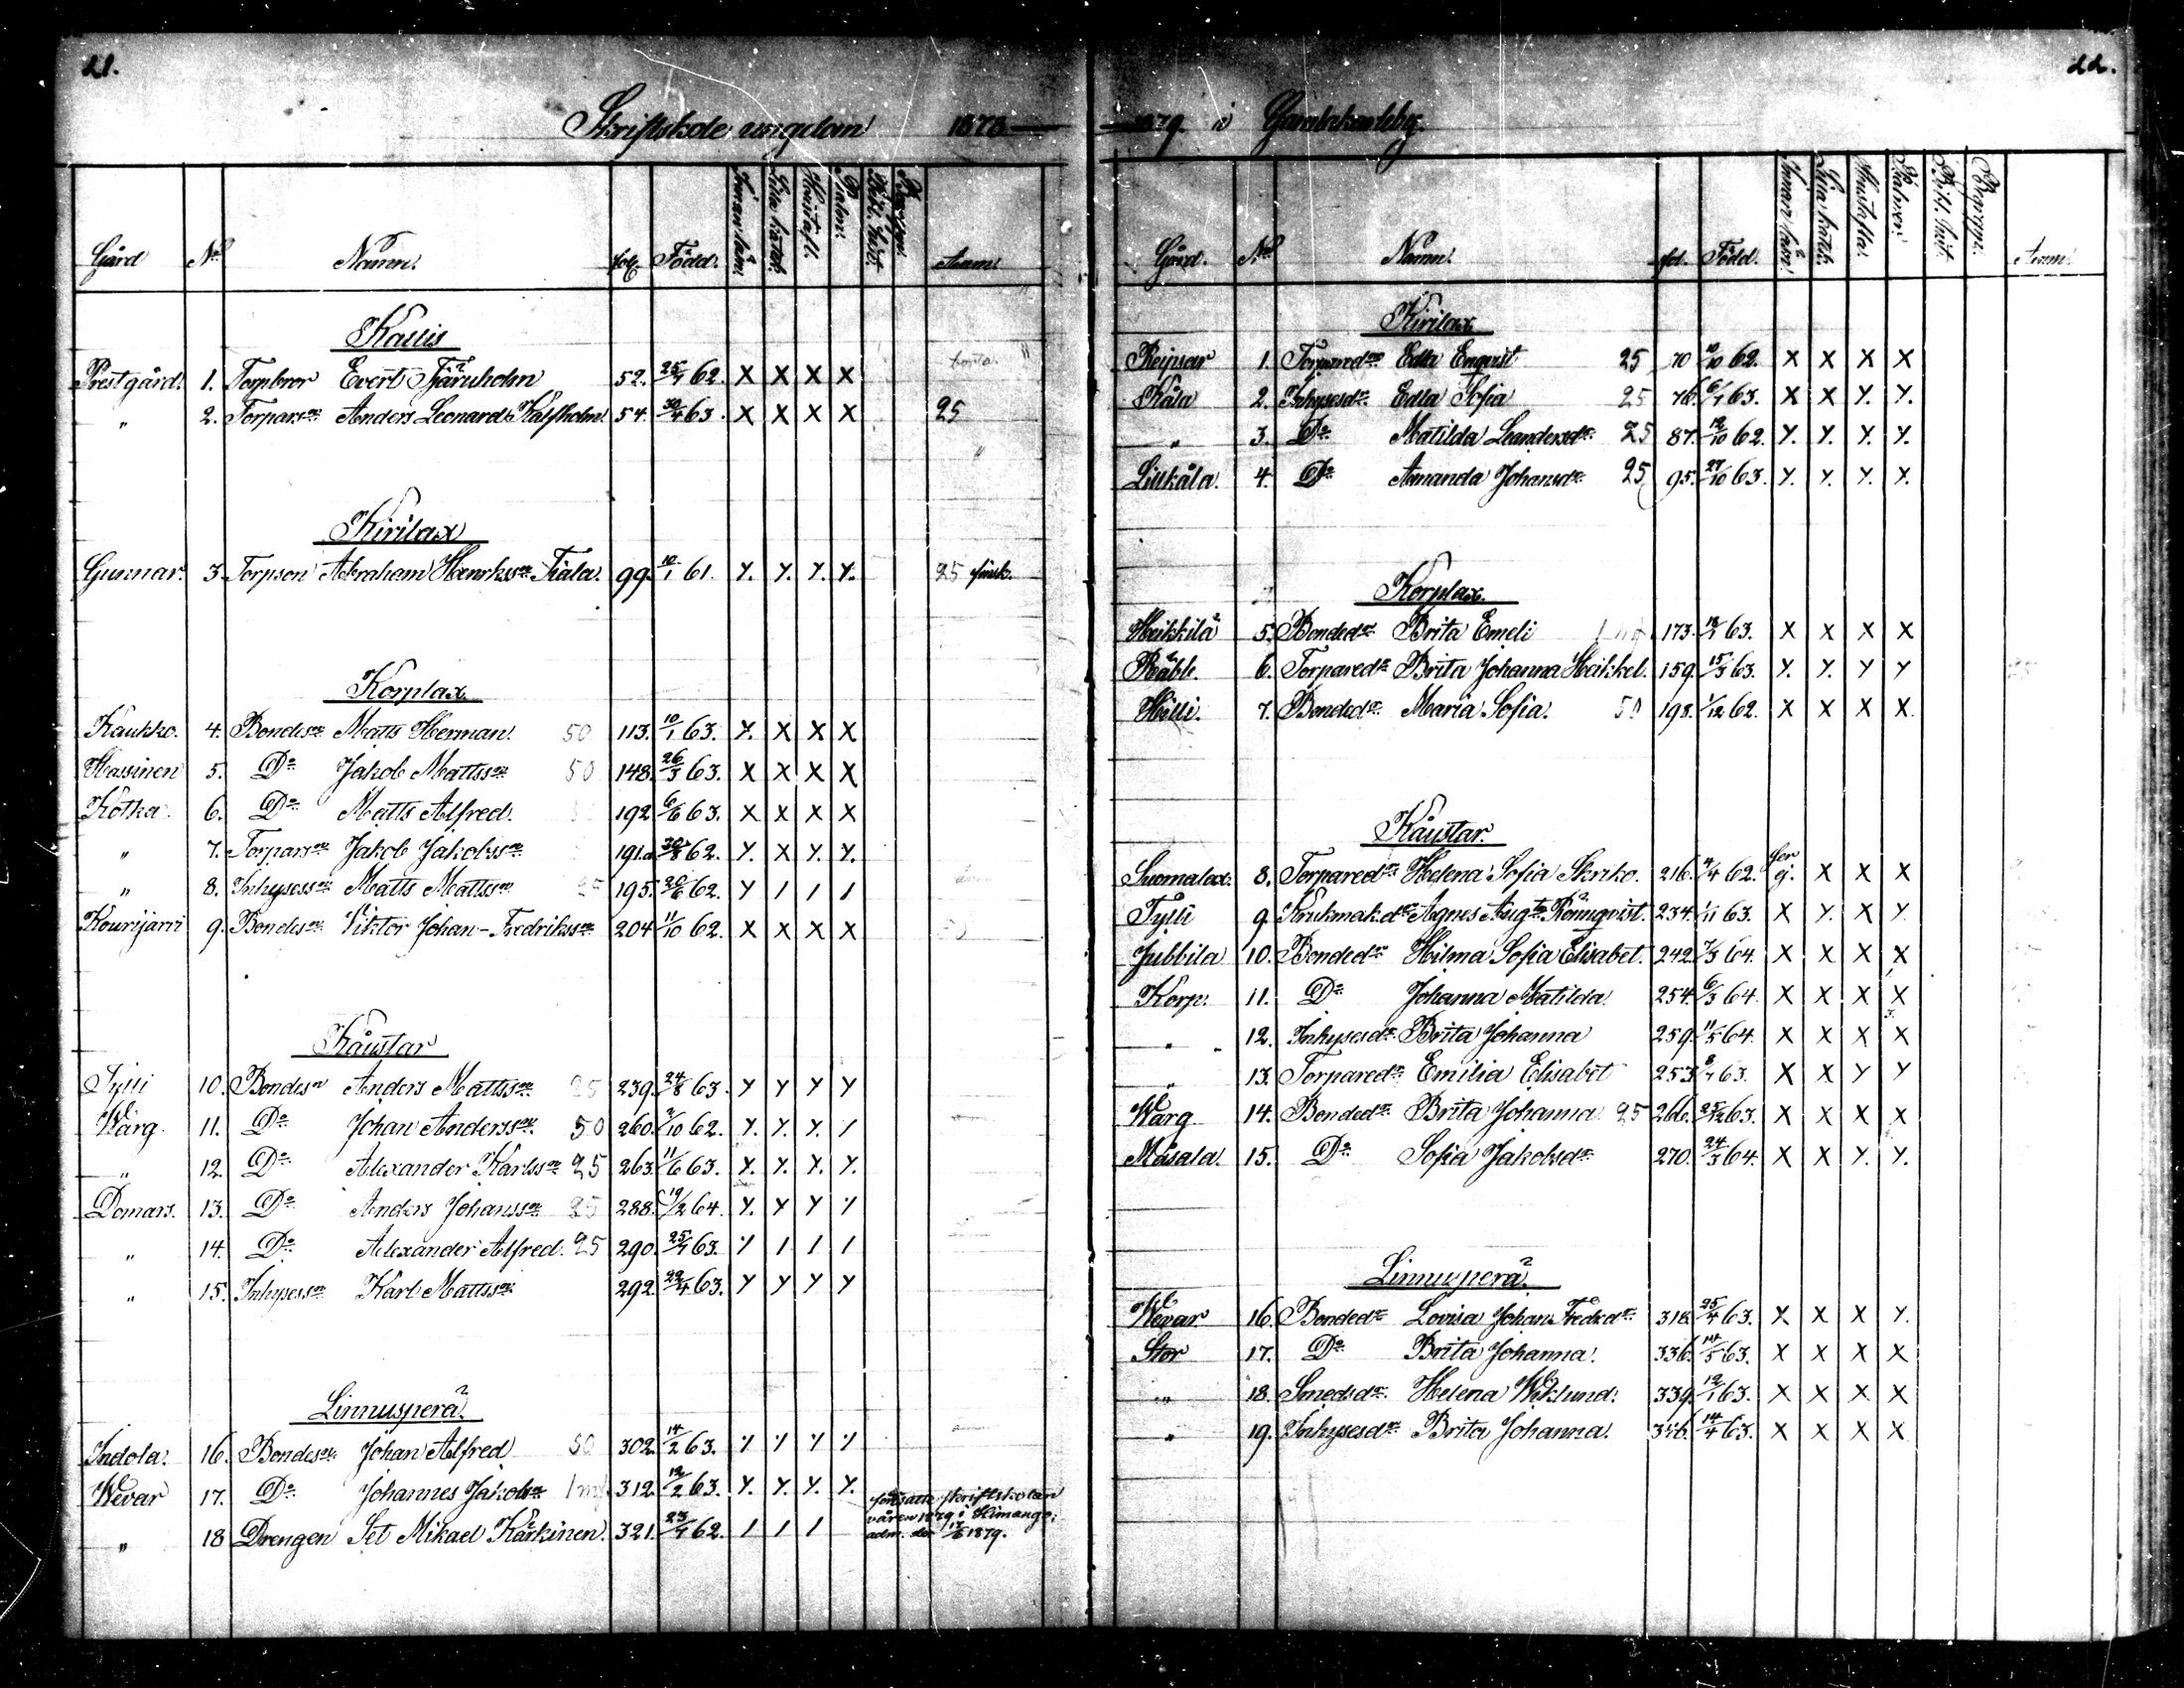 21.
Skriftskole ungdom 1878 —
Gård No Namn. fol. Född. Innan läsn. Lilla katek. Hustafl. Psalm. Bibl. hist. Begrepp. Anm.
Kallis
Prestgård. 1. Torpbror Evert Tjäruholm 52. 25/7 62. X X X X borta.
" 2. Torparsn Anders Leonard Kalfholm. 54. 30/4 63. X X X X 25
Kirilax
Gunnar. 3. Torpson Abraham Henrikssn Tiala. 99. 10/1 61. Y. Y. Y. Y. 25 finsk.
Korplax.
Kaukko. 4. Bondesn Matts Herman. 50 113. 10/1 63. Y. X X X
Hassinen 5. Do Jakob Mattssn 50 148. 26/3 63. X X X X
Kotka. 6. Do Matts Alfred. 192 6/6 63. X X X X
" 7. Torparsn Jakob Jakobssn 191.a 30/8 62. Y. X Y. Y.
" 8. Inhysessn Matts Mattssn 25 195. 20/6 62. Y / / /
Kourijarvi 9. Bondesn Viktor Johan-Fredrikssn 204 11/10 62. X X X X 50
Kåustar
Tylli 10. Bondesn Anders Mattssn 25 239. 24/8 63. Y Y Y Y
Warg. 11. Do Johan Anderssn 50 260. 2/10 62. Y. Y. Y. Y
" 12. Do Alexander Karlssn 25 263. 11/6 63. Y. Y. Y. Y.
Domars. 13. Do Anders Johanssn 25 288. 19/2 64. Y. Y Y Y
" 14. Do Alexander Alfred. 25 290. 25/7 63. Y / / /
" 15. Inhysessn Karl Mattssn 292. 22/4 63. Y Y Y Y
Linnusperä.
Indola. 16. Bondesn Johan Alfred 50 302. 14/2 63. Y Y Y Y
Wevar 17. Do Johannes Jakobsn 1 mk 312. 12/2 63. Y. Y. Y. Y.
" 18 Drengen Set Mikael Kärkinen. 321. 23/7 62. / / /
fortsatte skriftskolan
våren 1879 i Himango;
adm. der 1879.
22.
— 1879. i Gamlakarleby.
Gård. No Namn. fol. Född. Innan läsn. Lilla katek. Hustafla. Psalmer. Bibl. hist. Begrepp. Anm.
Kirilax
Reipsar 1. Torpared:r Edla Enqvist 25 70 10/10 62. X X X X
Kåla 2. Inhysesdr Edla Sofia 25 76. 6/1 63. X X Y. Y.
" 3. Do Matilda Leandersdr 25 87. 12/10 62. Y. Y. Y. Y.
Lillkåla. 4. Do Amanda Johansdr 25 95. 27/10 63. Y. Y. Y. Y.
Korplax.
Heikkilä 5. Bondedr Brita Emeli 1 mk 173. 18/1 63. X X X X
Räbb. 6. Torparedr Brita Johanna Häikkel. 159. 15/3 63. Y. Y. Y Y
Hilli. 7. Bondedr Maria Sofia. 50 198. 1/12 62. X X X X
Kåustar.
Suomalax. 8. Torparedr Helena Sofia Skriko. 216. 4/4 62. ej. X X X
Tylli 9. Krukmak.dr Agnes Augta Rönnqvist. 234. 1/11 63. X Y. X Y
Jubbila 10. Bondedr Hilma Sofia Elisabet. 242. 7/3 64. X X X X
Korp. 11. Do Johanna Matilda. 254. 6/3 64. X X X X
" 12. Inhysesdr Brita Johanna 259. 11/5 64. X X X X
" 13. Torparedr Emilia Elisabet 253. 8/7 63. X X Y Y
Warg 14. Bondedr Brita Johanna 25 266. 25/12 63. X X X X
Måsala. 15. Do Sofia Jakobsdr 270. 24/3 64. X X Y. Y.
Linnusperä.
Wevar 16. Bondedr Lovisa Johan Fredr.dr 318. 25/4 63. X X X Y.
Stor 17. Do Brita Johanna. 336. 14/5 63. X X X X
" 18. Smedsdr Helena Wiklund. 339. 12/1 63. X X X X
" 19. Inhysesdr Brita Johanna. 346. 14/4 63. X X X X